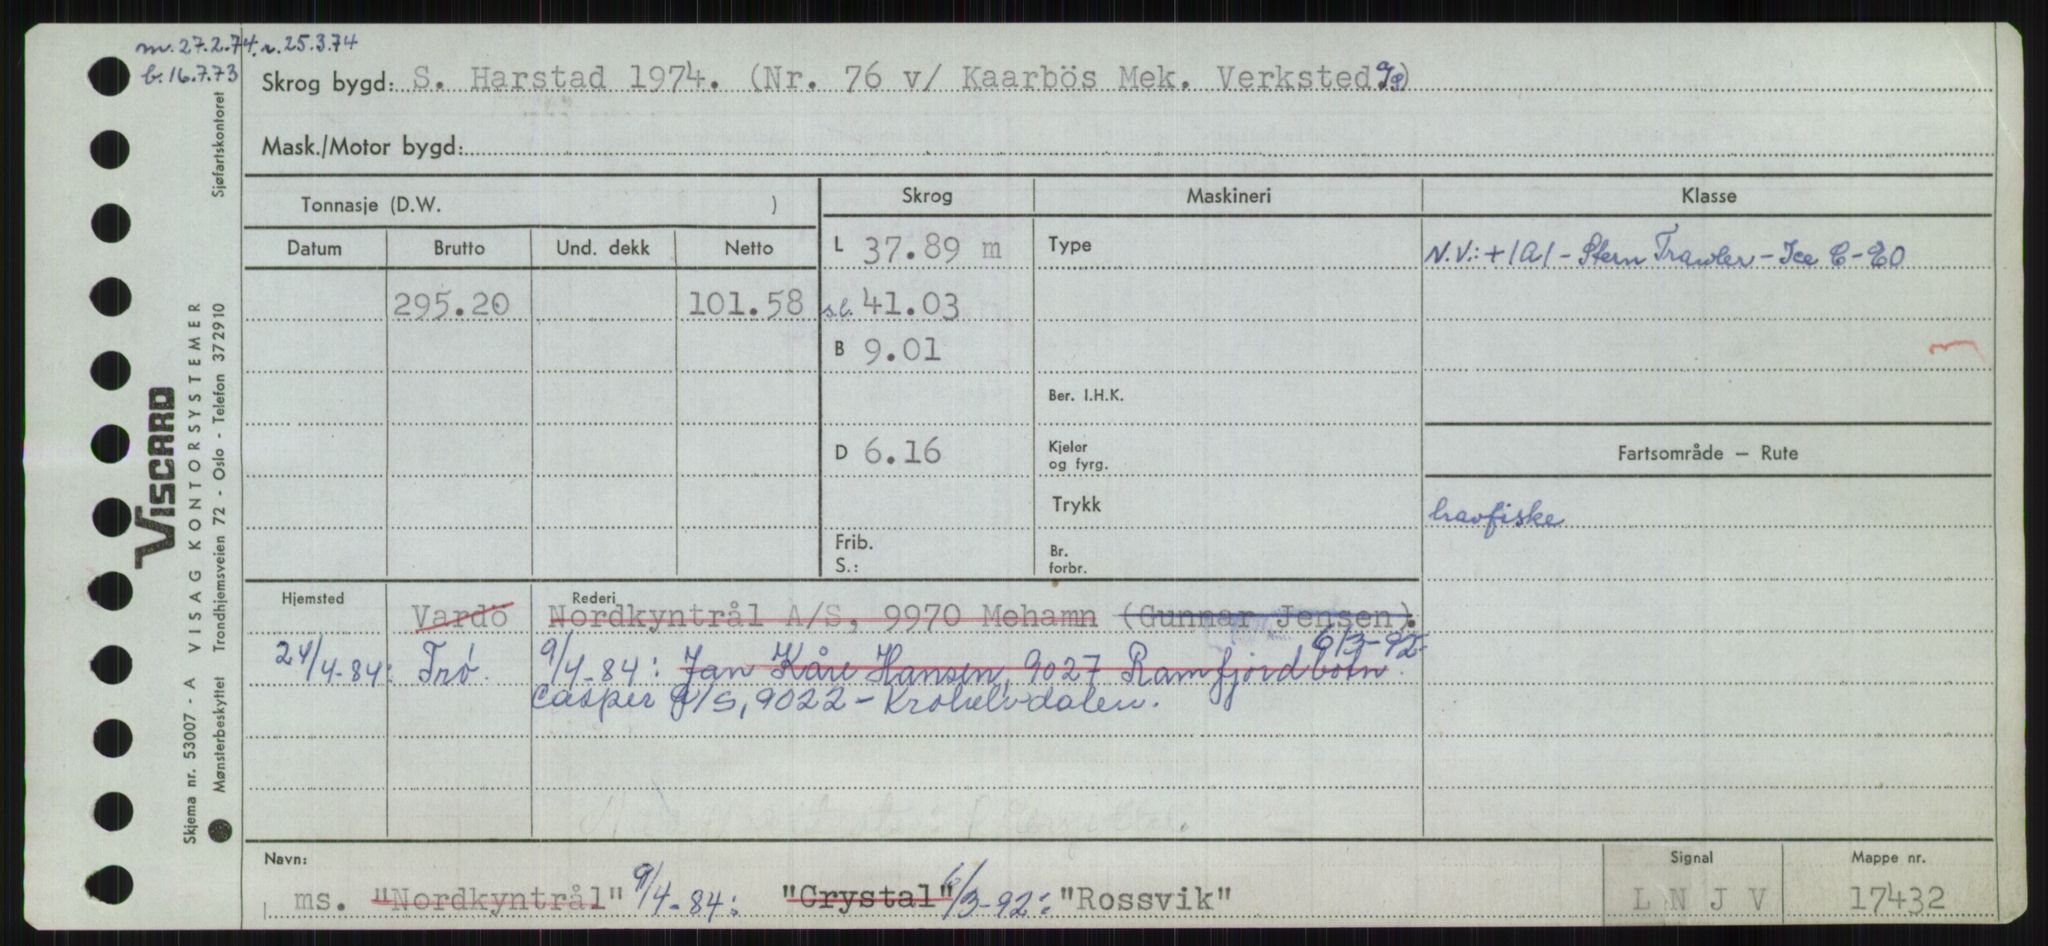 m. 27.2.74. r. 25.3.74
b. 16.7.73
Skrog bygd: S. Harstad 1974. (Nr. 76 v/ Kaarbös Mek. Verksted )
Mask./Motor bygd:
Tonnasje (D.W. )
Skrog
Maskineri
Klasse
Datum
Brutto
Und. dekk
Netto
L 37.89 m
Type
N.V.: +1A1 - Stern Trawler - Ice C - EO
295.20
101.58
s.l. 41.03
B 9.01
Ber. I.H.K.
D 6.16
Kjeler
og fyrg.
Fartsområde — Rute
Trykk
havfiske
Frib.
S.:
Br.
forbr.
Hjemsted
Rederi
Vardö
Nordkyntrål A/S, 9970 Mehamn (Gunnar Jensen).
6/3-92
24/4-84: Trø. 9/4-84: Jan Kåre Hansen, 9027 Ramfjordbotn.
Casper A/S, 9022 - Krokelvdalen.
Navn:
Signal
Mappe nr.
ms. "Nordkyntrål" 9/4-84: "Crystal" 6/3-92: "Rossvik"
L N J V
17432
VISCARD
Skjema nr. 53007 - A VISAG KONTORSYSTEMER
Mønsterbeskyttet Trondhjemsveien 72 - Oslo - Telefon 372910 Sjøfartskontoret